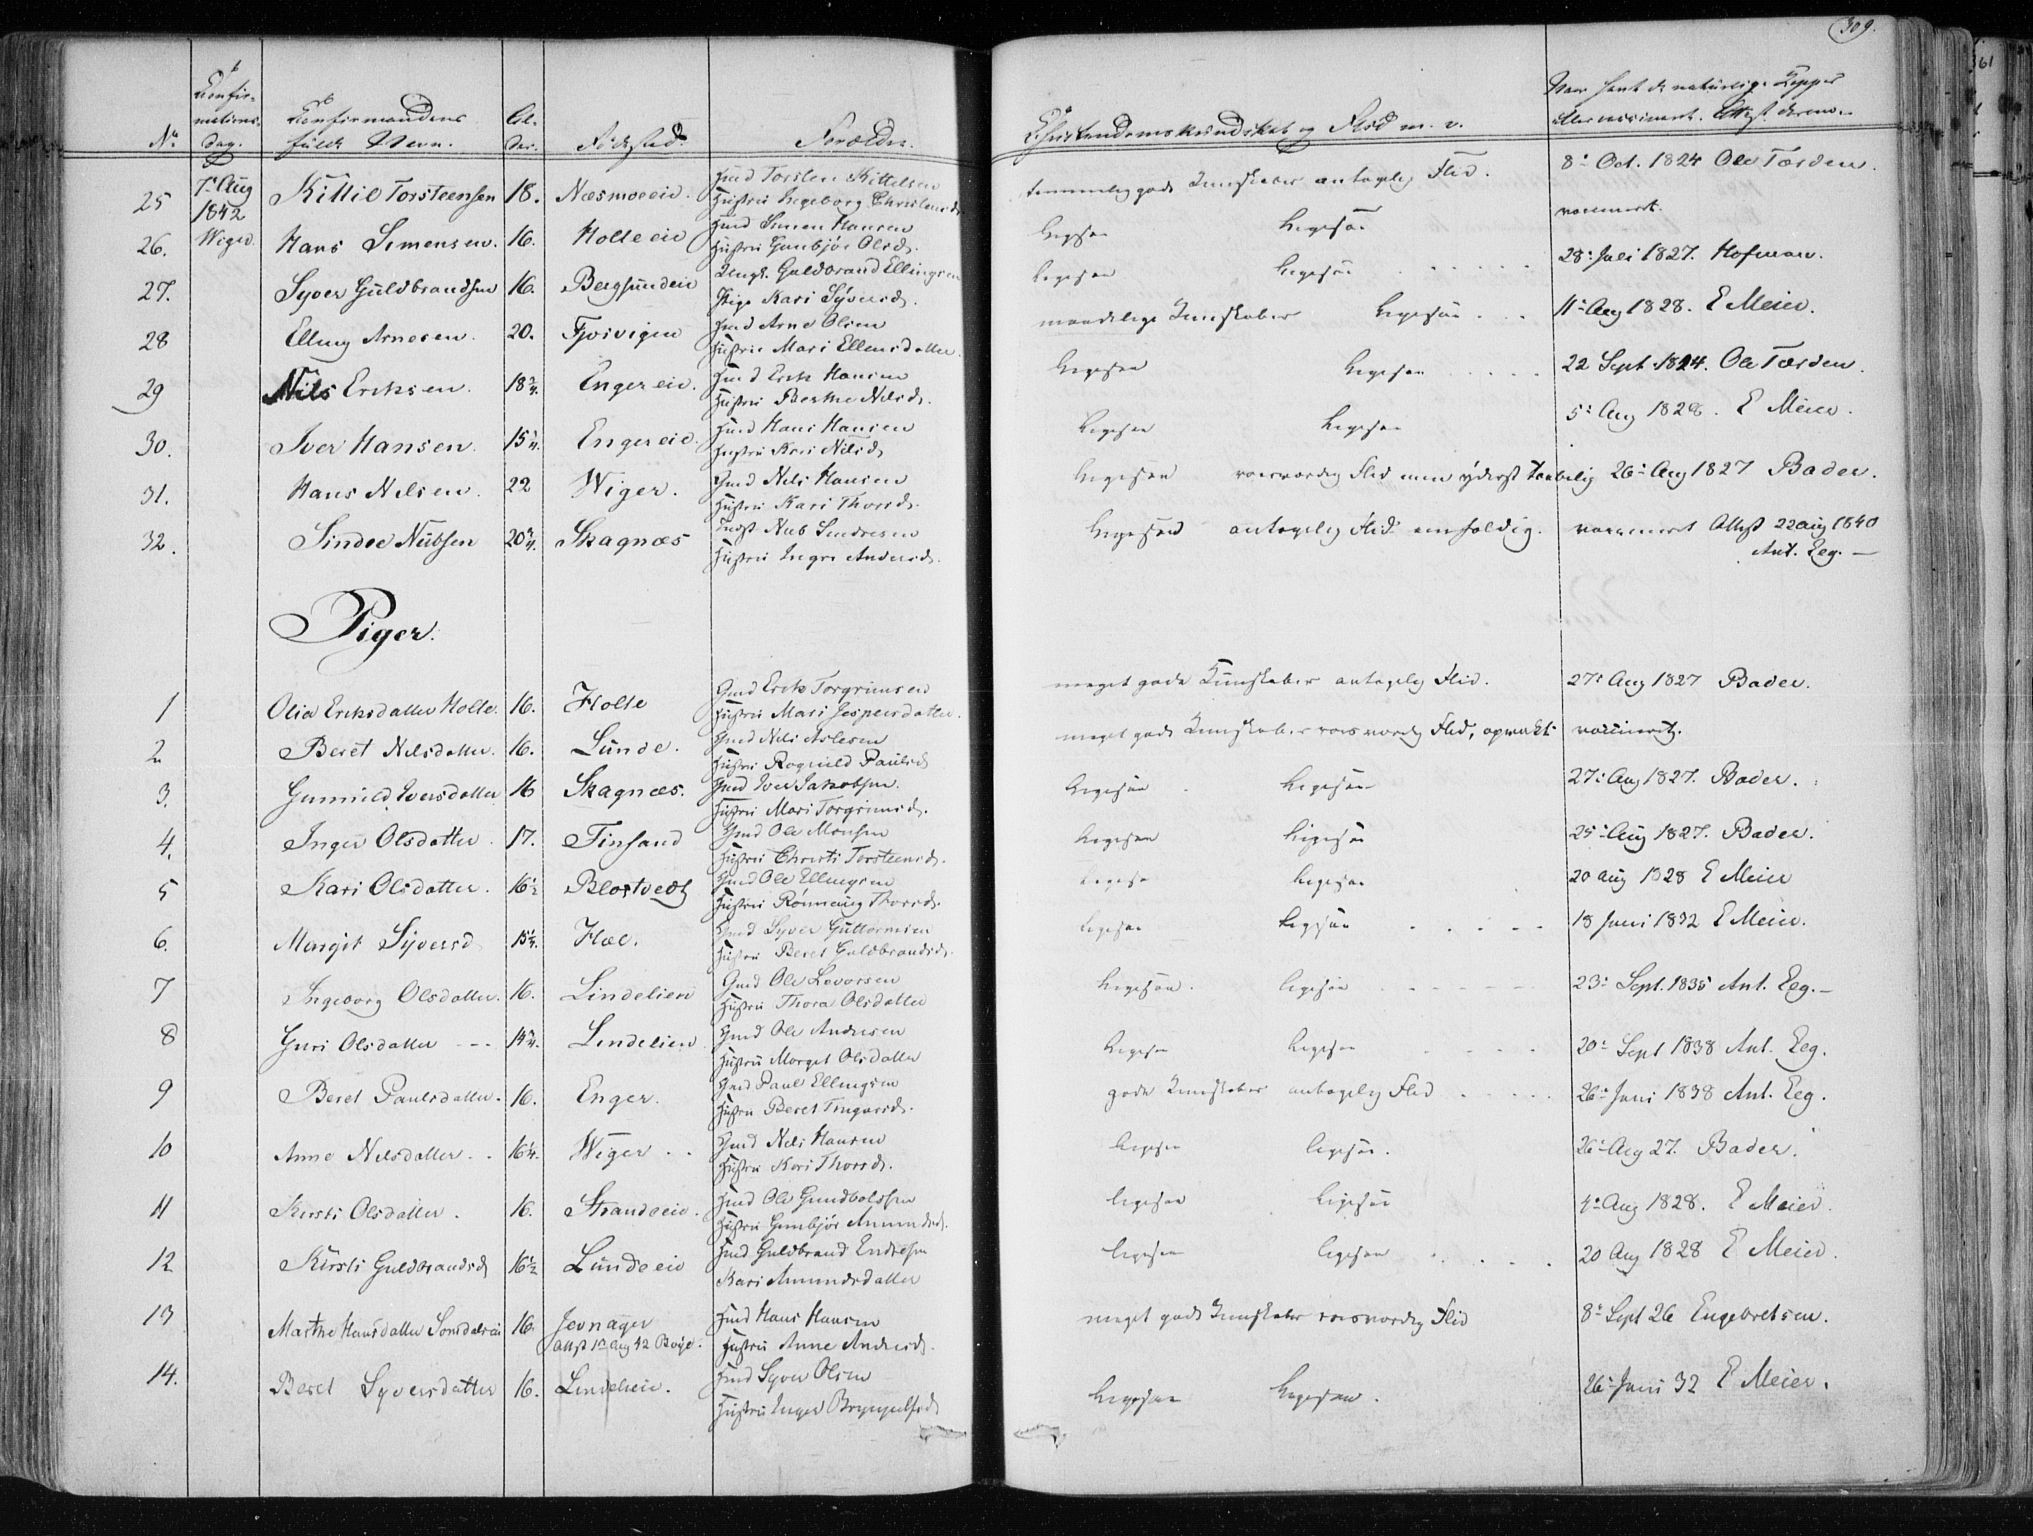 309.
No
Confir-
mations-
Dag.
Confirmandens
fulde Navn.
Al-
der.
Födested.
Forældre.
Christendomskundskab og Flid m. v.
Naar havt de naturlige Kopper
eller vaccineret.
25 7 Aug 1842 Kittil Torsteensen 18. Næsmoeeie. Torsten Kittelsen
Hustru Ingeborg
temmelig gode Kundskaber antagelig Flid. 8 Oct. 1824 Ole Tærden
26. Wiger Hans Simensen. 16. Holle eie Simen Hansen
Hustru Gunbjör Olsd.
ligesaa ligesaa vaccineret.
27. Syver Guldbrandsen 16. Bergsundeie Ungk. Guldbrand Ellingsen
Pige Kari Syversd.
ligesaa ligesaa 28 Juli 1827. Hofman.
28 Elling Arnesen. 20. Arne Olsen
Hustru Mari Ellensdatter
maadelige Kundskaber ligesaa 11 Aug 1828. E Meier.
29 Nils Ericksen. 18 3/4. Engereie. Erik Hansen
Hustru Berthe Nilsd.
ligesaa ligesaa 22 Sept 1824. Ole Tærden.
30. Iver Hansen. 15 1/4. Engereie. Hans Hansen
Hustru Kari Nilsd.
ligesaa ligesaa 5 Aug 1828. E Meier.
31. Hans Nilsen. 22 Wiger. Gmd Nils Hansen
Hustru Kari Thorsd.
ligesaa roesværdig Flid men yderst tarvelig 26 Aug 1827 Bader.
32. Sindre Nubsen 20 3/4. Skagnæs Nub Sindresen
Hustru Andersd.
ligesaa antagelig Flid enfoldig. vaccineret Attest 22 Aug 1840
Ant. Eeg. —
Piger.
1 Olia Eriksdatter Holte. 16. Holte Gmd Erik Torgrimsen
Hustru Mari Jespersdatter.
meget gode Kundskaber antagelig Flid. 27 Aug 1827 Bader.
2 Beret Nilsdatter. 16. Lunde. Gmd Nils Aslesen
Hustru Rognild Paulsd.
meget gode Kundskaber roesværdig Flid, opvakt vaccineret.
3. Gunnild Iversdatter 16 Skagnæs. Gmd Iver Jakobsen.
Hustru Mari Torgrimsd.
ligesaa ligesaa 27 Aug 1827. Bader.
4. Inger Olsdatter. 17. Finsand Gmd Ole Monsen
Hustru Christi Torsteensd.
ligesaa ligesaa 25 Aug 1827. Bader.
5 Kari Olsdatter. 16 1/2 Gmd Ole Ellingsen
Hustru Rönnaug Thorsd.
ligesaa ligesaa 20 Aug 1828 E Meier
6. Margit Syversd 15 1/4. Hæe. Gmd Syver Guttormsen
Hustru Beret Guldbrandsd.
ligesaa ligesaa 18 Juni 1832 E Meier.
7 Ingeborg Olsdatter. 16. Lindelien Gmd Ole
Hustru Thora Olsdatter
ligesaa. ligesaa 23 Sept. 1835 Ant. Eeg.—
8 Guri Olsdatter 14 3/4. Lindelien Gmd Ole Andersen
Hustru Margit Olsdatter
ligesaa ligesaa 20 Sept 1838 Ant. Eeg.
9 Beret Paulsdatter. 16. Enger. Gmd Paul Ellingsen
Hustru Beret
gode Kundskaber antagelig Flid 26 Juni 1838 Ant. Eeg.
10 Anne Nilsdatter. 16 1/4. Wiger Gmd Nils Hansen
Hustru Kari Thorsd.
ligesaa ligesaa. 26 Aug 27. Bader.
11 Kirsti Olsdatter. 16. Strandeeie. Ole Gundbolssen
Hustru Gunbjör Amundsd.
ligesaa ligesaa 4 Aug 1828. E Meier.
12 Kirsti Guldbrandsd 16 1/2 Lundeeie Guldbrand Endresen
Kari Amundsdatter
ligesaa ligesaa 20 Aug 1828 E Meier.
13 Marthe Hansdatter 16. Jevnager Hans Hansen
Hustru Anne Andersd.
meget gode Kundskaber roesværdig Flid 8 Sept 26 Engebretsen.
14. Beret Syversdatter 16. Lindelien. Syver Olsen
Hustru Inger
ligesaa ligesaa. 26 Juni 32 E Meier.
361